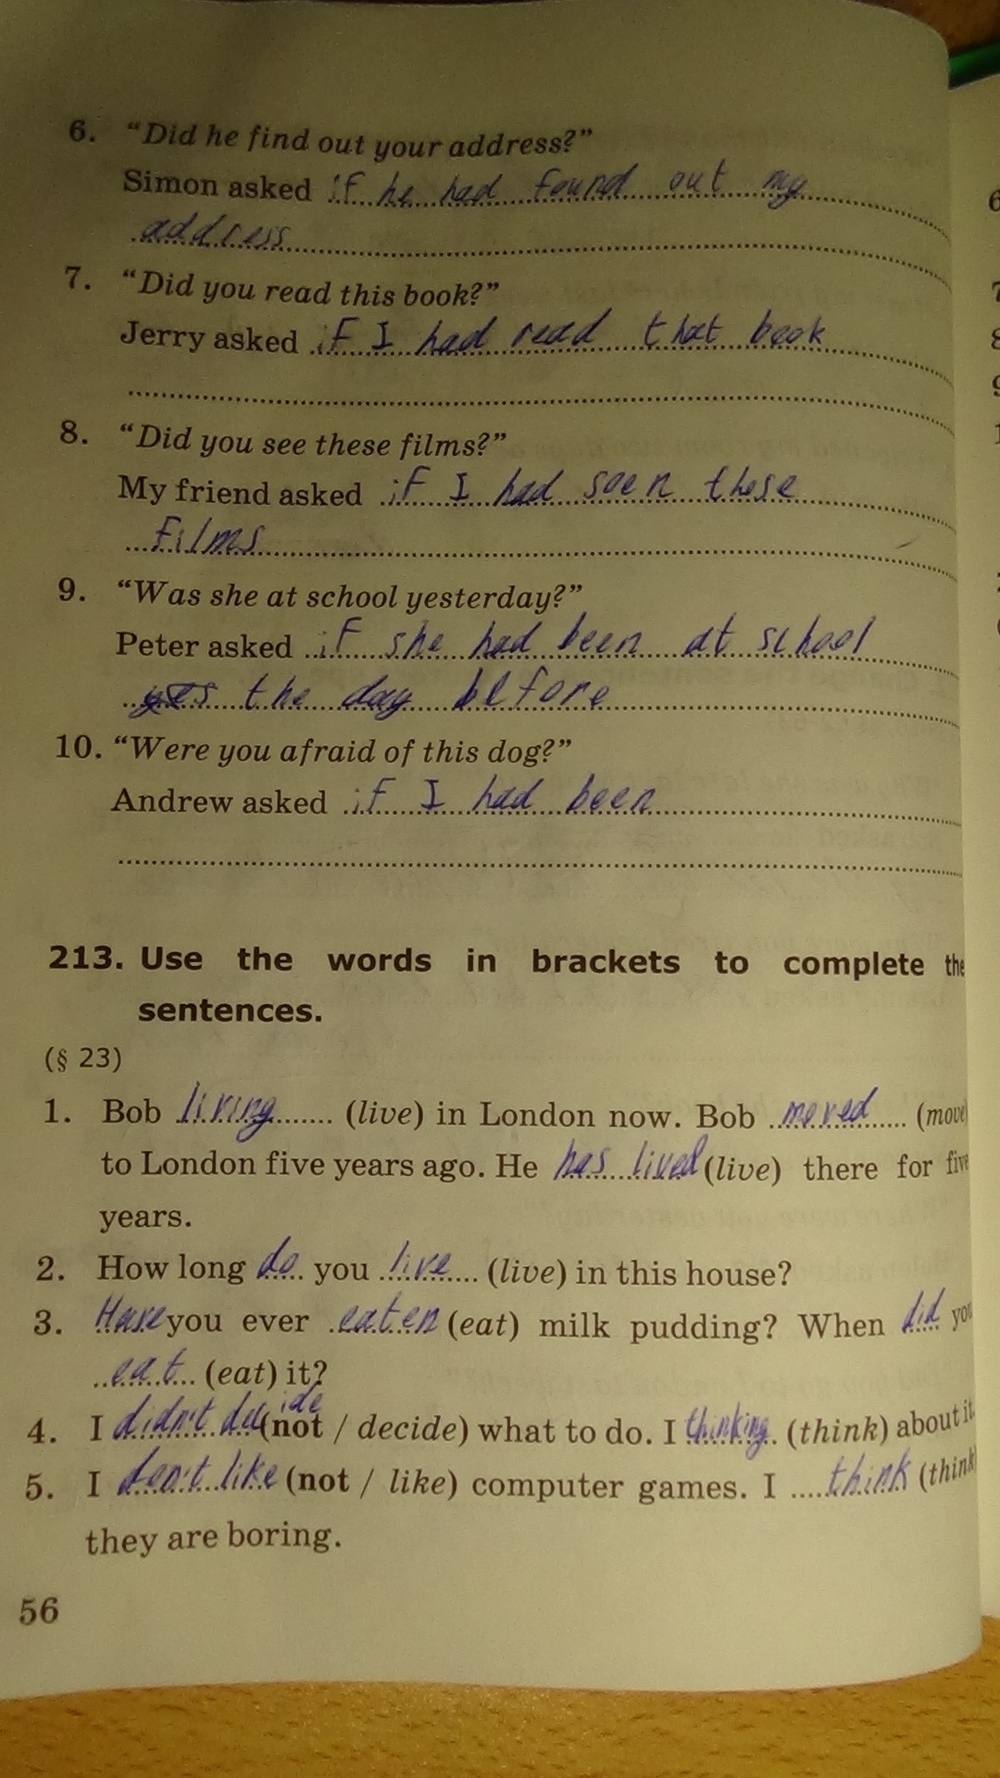 6. “Did he find out your address?”
Simon asked if he had found out my
address
7. “Did you read this book?”
Jerry asked if I had read that book
8. “Did you see these films?”
My friend asked if I had seen those
films
9. “Was she at school yesterday?”
Peter asked if she had been at school
the day before
10. “Were you afraid of this dog?”
Andrew asked if I had been
213. Use the words in brackets to complete the
sentences.
(§ 23)
1. Bob living (live) in London now. Bob moved (move
to London five years ago. He has lived (live) there for five
years.
2. How long do you live (live) in this house?
3. Have you ever eaten (eat) milk pudding? When did you
eat (eat) it?
4. I didn't decide (not / decide) what to do. I thinking (think) about it.
5. I don't like (not / like) computer games. I think (think
they are boring.
56